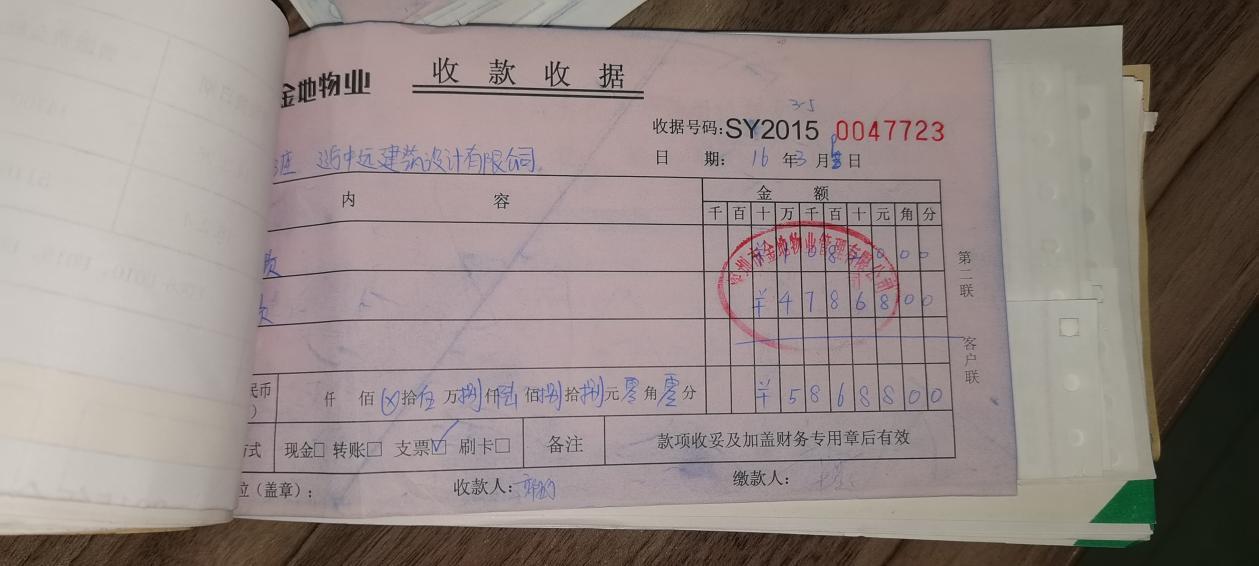 金地物业 收款收据
3-5
收据号码:SY2015 0047723
日 期: 16 年 3 月 日
座 中远建筑设计有限公司
内 容 金 额
千 百 十 万 千 百 十 元 角 分
款
款 ¥4786800
第二联
客户联
民币 仟 佰 ⊗拾伍万捌仟陆佰捌拾捌元零角零分 ¥5868800
方式 现金□ 转账□ 支票☑ 刷卡□ 备注 款项收妥及加盖财务专用章后有效
位(盖章): 收款人: 缴款人:
市金地物业管理有限公司